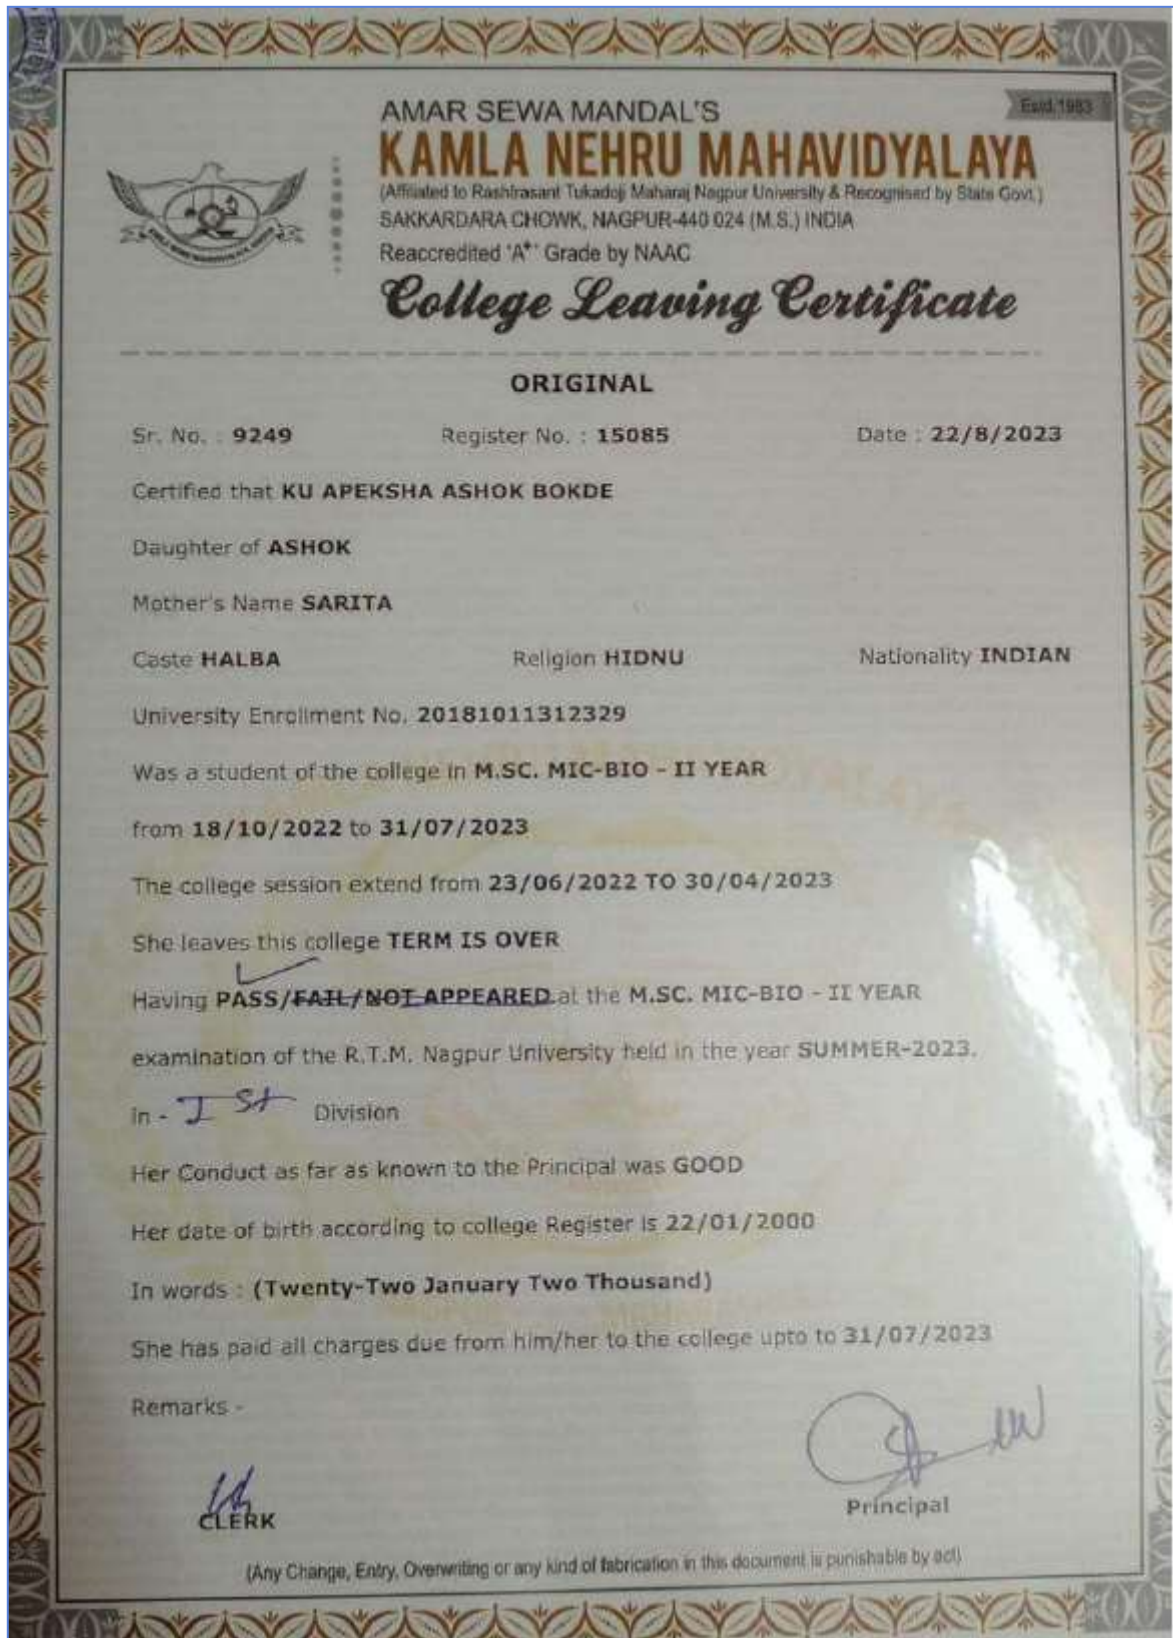 Estd.1983
AMAR SEWA MANDAL'S
KAMLA NEHRU MAHAVIDYALAYA
(Affiliated to Rashtrasant Tukadoji Maharaj Nagpur University & Recognised by State Govt.)
SAKKARDARA CHOWK, NAGPUR-440 024 (M.S.) INDIA
Reaccredited 'A+' Grade by NAAC
College Leaving Certificate
ORIGINAL
Sr. No. : 9249 Register No. : 15085 Date : 22/8/2023
Certified that KU APEKSHA ASHOK BOKDE
Daughter of ASHOK
Mother's Name SARITA
Caste HALBA Religion HIDNU Nationality INDIAN
University Enrollment No. 20181011312329
Was a student of the college in M.SC. MIC-BIO - II YEAR
from 18/10/2022 to 31/07/2023
The college session extend from 23/06/2022 TO 30/04/2023
She leaves this college TERM IS OVER
Having PASS/FAIL/NOT APPEARED at the M.SC. MIC-BIO - II YEAR
examination of the R.T.M. Nagpur University held in the year SUMMER-2023.
in - I st Division
Her Conduct as far as known to the Principal was GOOD
Her date of birth according to college Register is 22/01/2000
In words : (Twenty-Two January Two Thousand)
She has paid all charges due from him/her to the college upto to 31/07/2023
Remarks -
CLERK Principal
(Any Change, Entry, Overwriting or any kind of fabrication in this document is punishable by act)